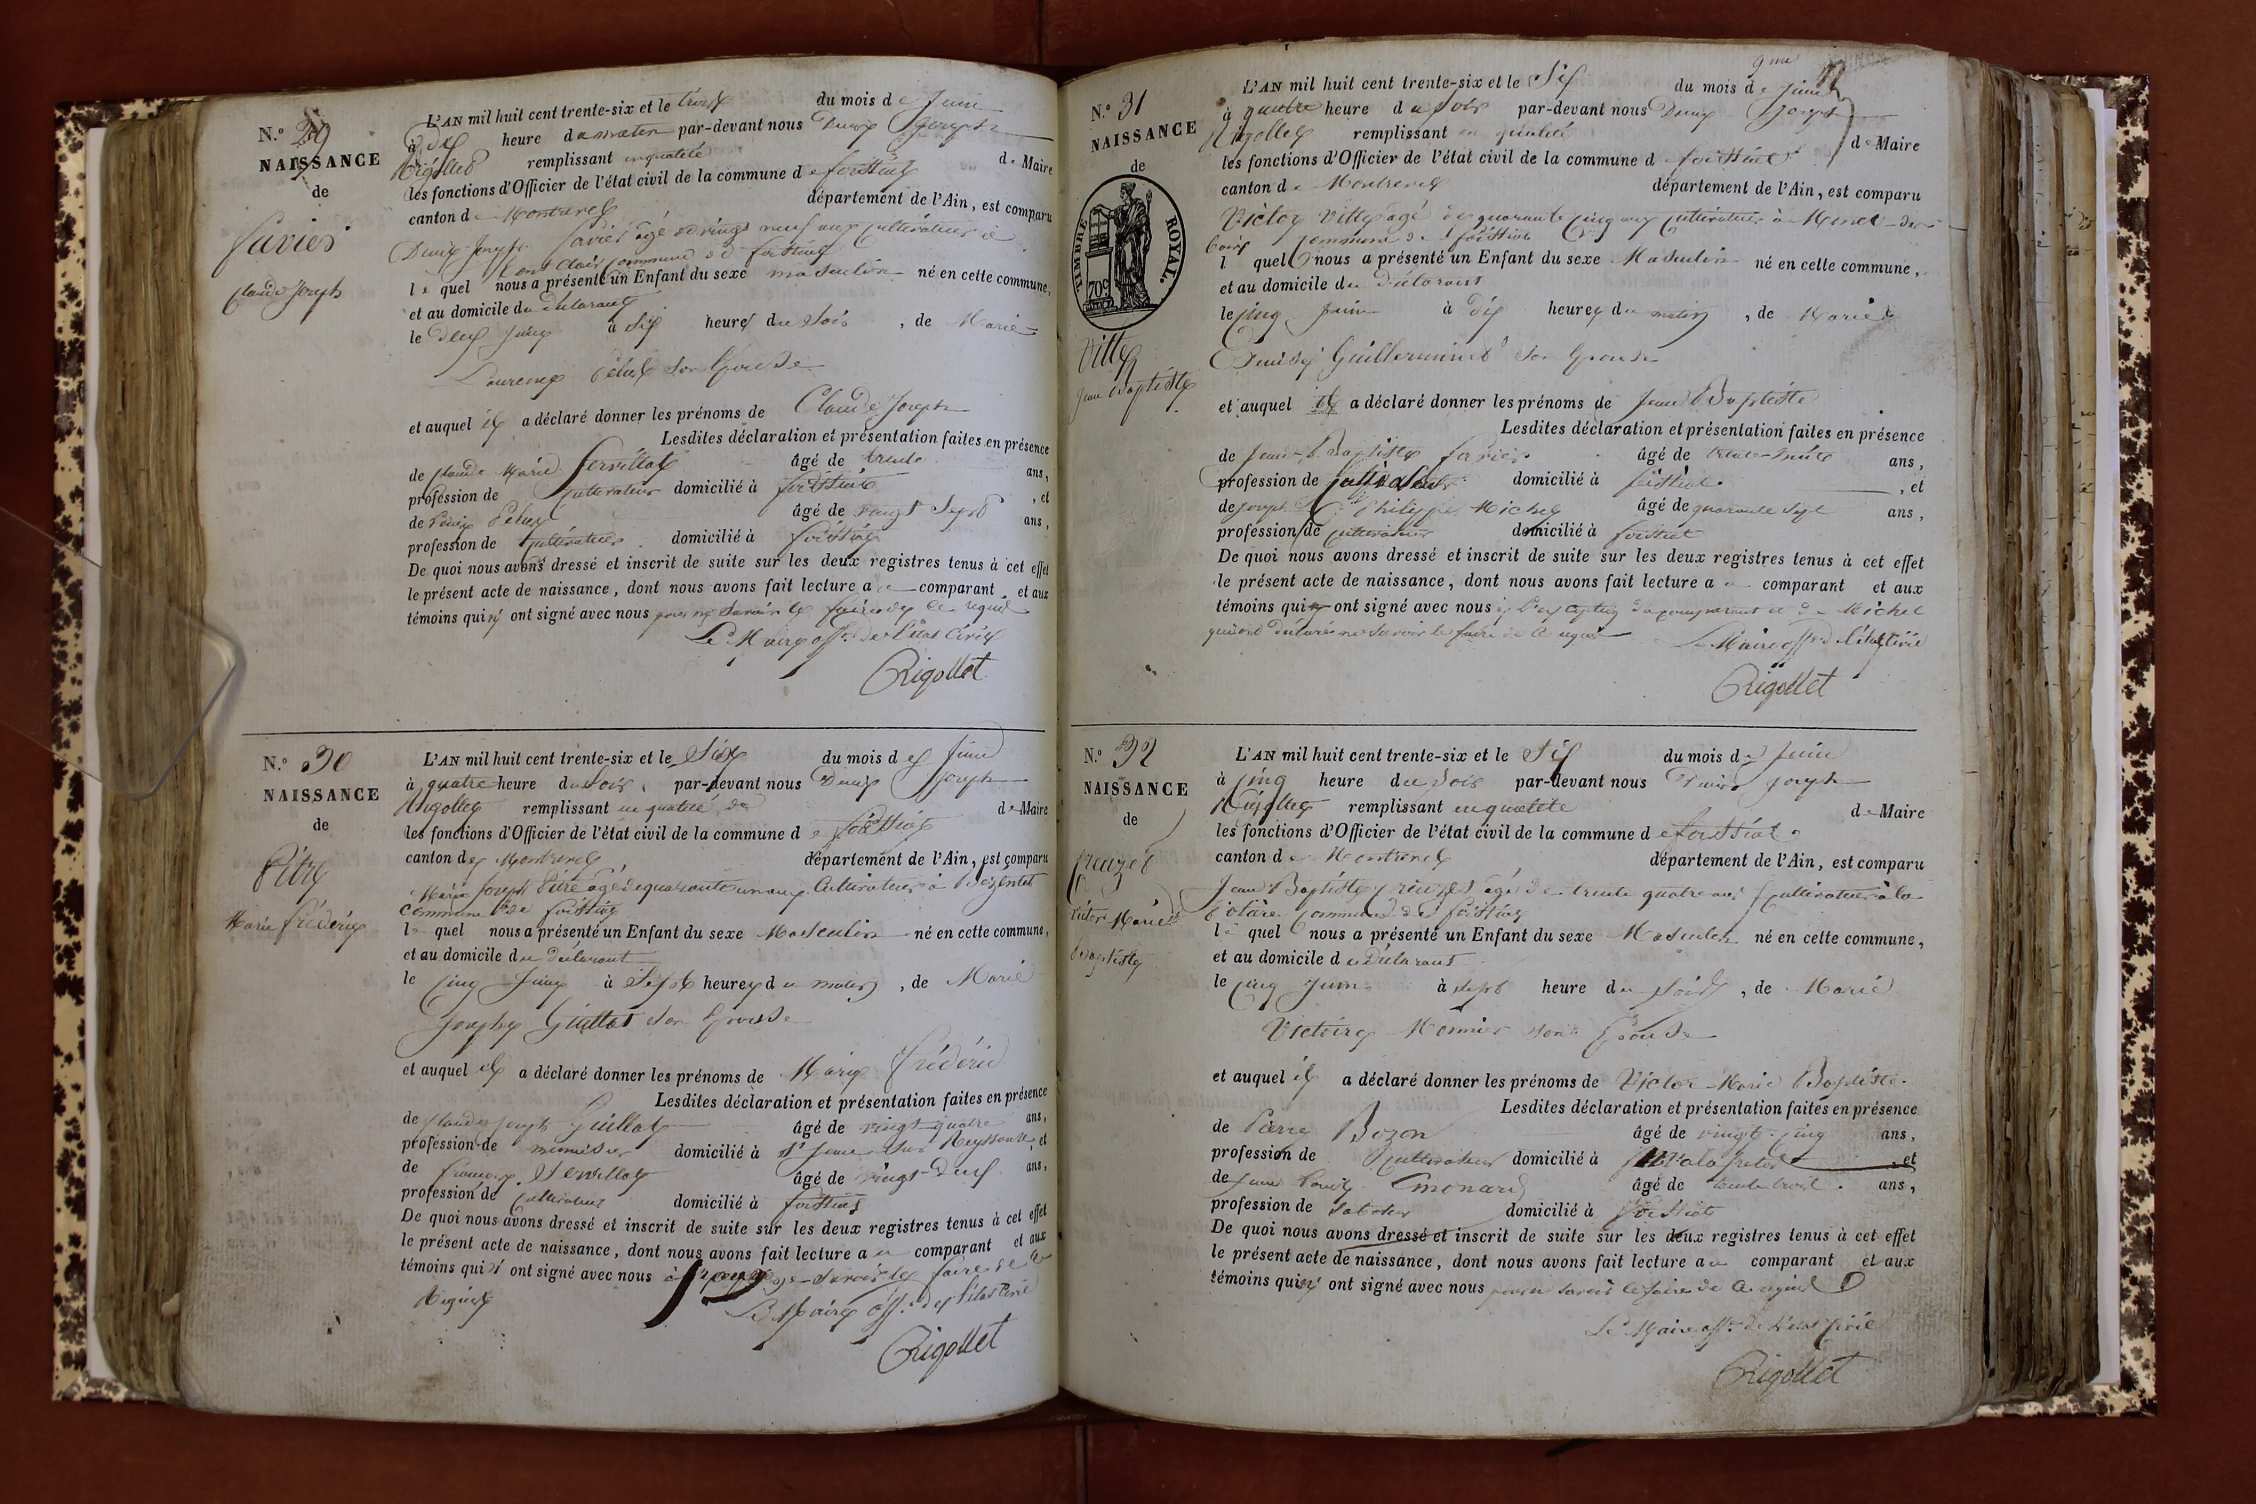 N.° 29
NAISSANCE
de
Favier
Claude Joseph
L'AN mil huit cent trente-six et le trois du mois de Juin
à dix heure du matin par-devant nous Denis Joseph
Rigollet remplissant en qualité de Maire
les fonctions d'Officier de l'état civil de la commune de foissiat
canton de Montrevel département de l'Ain, est comparu
Denis Joseph favier âgé de vingt neuf ans cultivateur à
commune de foissiat
le quel nous a présenté un Enfant du sexe masculin né en cette commune,
et au domicile du déclarant
le deux Juin à Six heures du Soir, de Marie
Laurence Pelus Son épouse
et auquel il a déclaré donner les prénoms de Claude Joseph
Lesdites déclaration et présentation faites en présence
de Claude Marie âgé de trente ans,
profession de cultivateur domicilié à foissiat, et
de Denis Pelus âgé de vingt Sept ans,
profession de cultivateur domicilié à foissiat
De quoi nous avons dressé et inscrit de suite sur les deux registres tenus à cet effet
le présent acte de naissance, dont nous avons fait lecture au comparant et aux
témoins qui n'ont signé avec nous pour ne Savoir le faire de ce requis
Le Maire off. de l'état civil
Rigollet
N.° 30
NAISSANCE
de
Pitre
Marie frédéric
L'AN mil huit cent trente-six et le Six du mois de Juin
à quatre heure du Soir, par-devant nous Denis Joseph
Rigollet remplissant en qualité de de Maire
les fonctions d'Officier de l'état civil de la commune de foissiat
canton de Montrevel département de l'Ain, est comparu
Marie Joseph Pitre âgé de quarante un ans Cultivateur à
commune de foissiat
le quel nous a présenté un Enfant du sexe Masculin né en cette commune,
et au domicile du déclarant
le cinq Juin à Sept heures du matin, de Marie
Josephe Guillot Son épouse
et auquel il a déclaré donner les prénoms de Marie frédéric
Lesdites déclaration et présentation faites en présence
de Claude Joseph Guillot âgé de vingt quatre ans,
profession de menuisier domicilié à St Jean Sur Reyssouze, et
de françois âgé de vingt-Deux ans,
profession de Cultivateur domicilié à foissiat
De quoi nous avons dressé et inscrit de suite sur les deux registres tenus à cet effet
le présent acte de naissance, dont nous avons fait lecture au comparant et aux
témoins qui n'ont signé avec nous Savoir le faire de ce
Requis
Le Maire off. de l'état Civil
Rigollet
9me
N.° 31
NAISSANCE
de
TIMBRE ROYAL.
70c
Vitte
Jean Baptiste
L'AN mil huit cent trente-six et le Six du mois de Juin
à quatre heure du Soir par-devant nous Denis Joseph
Rigollet remplissant en qualité de Maire
les fonctions d'Officier de l'état civil de la commune de foissiat
canton de Montrevel département de l'Ain, est comparu
Victor Vitte âgé de quarante cinq ans cultivateur à
commune de foissiat
l quel nous a présenté un Enfant du sexe Masculin né en cette commune,
et au domicile du Déclarant
le cinq Juin à dix heures du matin, de Marie
Guillerminet Son épouse
et auquel il a déclaré donner les prénoms de Jean Baptiste
Lesdites déclaration et présentation faites en présence
de Jean Baptiste favier âgé de ans,
profession de domicilié à foissiat, et
de Joseph Philippe Michel âgé de quarante Sept ans,
profession de cultivateur domicilié à foissiat
De quoi nous avons dressé et inscrit de suite sur les deux registres tenus à cet effet
le présent acte de naissance, dont nous avons fait lecture au comparant et aux
témoins qui ont signé avec nous à l'exception du comparant et de Michel
qui ont déclaré ne Savoir le faire de ce requis Le Maire off. de l'état civil
Rigollet
N.° 32
NAISSANCE
de
Creuzet
Victor Marie
Baptiste
L'AN mil huit cent trente-six et le Six du mois de Juin
à cinq heure du Soir par-devant nous Denis Joseph
Rigollet remplissant en qualité de Maire
les fonctions d'Officier de l'état civil de la commune de foissiat
canton de Montrevel département de l'Ain, est comparu
Jean Baptiste Creuzet âgé de trente quatre ans Cultivateur à la
commune de foissiat
le quel nous a présenté un Enfant du sexe Masculin né en cette commune,
et au domicile du Déclarant
le cinq Juin à sept heure du Soir, de Marie
Victoire Monnier Son épouse
et auquel il a déclaré donner les prénoms de Victor Marie Baptiste
Lesdites déclaration et présentation faites en présence
de Pierre Bozon âgé de vingt-cinq ans,
profession de Cultivateur domicilié à et
de Jean Louis âgé de trente trois ans,
profession de Sabotier domicilié à foissiat
De quoi nous avons dressé et inscrit de suite sur les deux registres tenus à cet effet
le présent acte de naissance, dont nous avons fait lecture au comparant et aux
témoins qui n'ont signé avec nous pour ne savoir le faire de ce requis
Le Maire off. de l'état civil
Rigollet